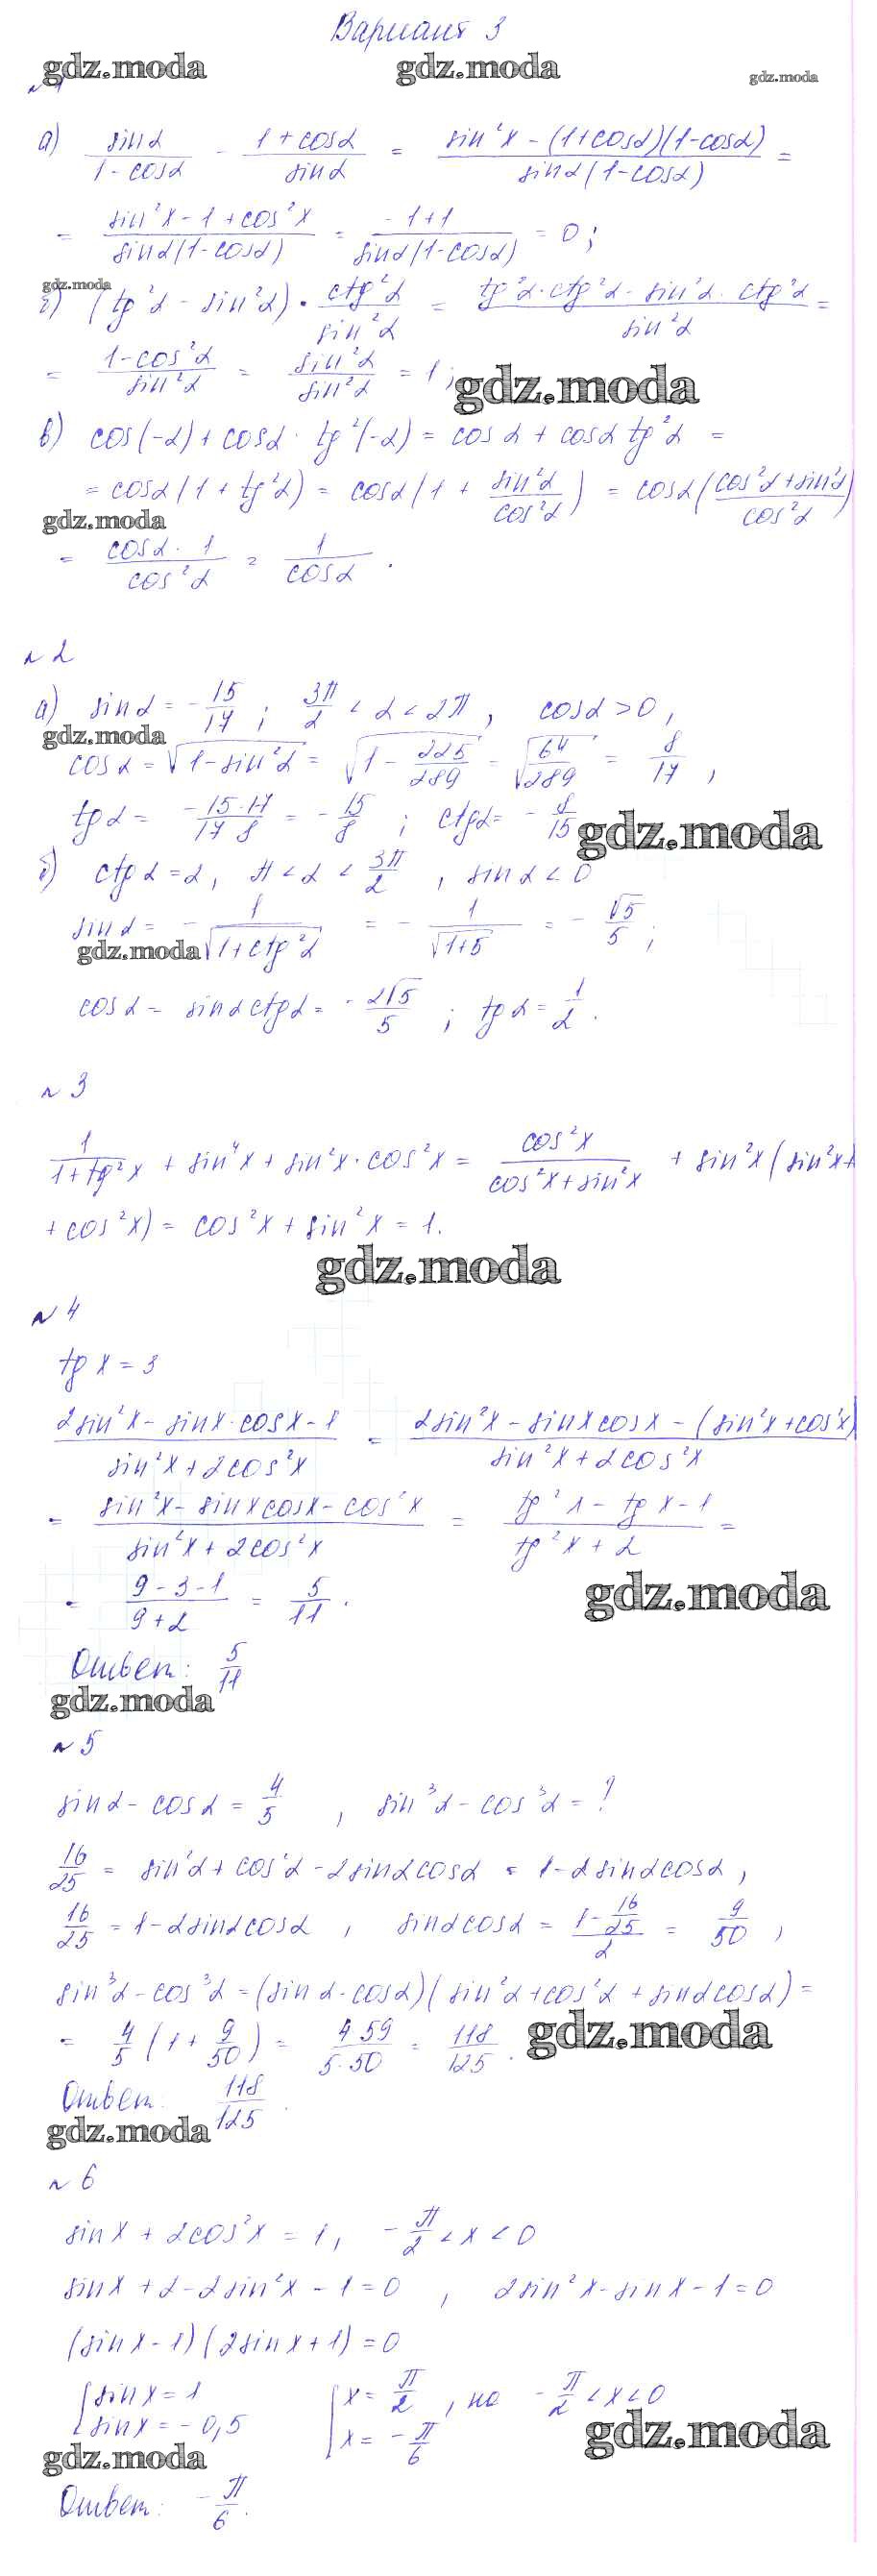 Вариант 3
gdz.moda gdz.moda gdz.moda
№1
а) sinα/(1-cosα) - (1+cosα)/sinα = (sin²x-(1+cosα)(1-cosα))/(sinα(1-cosα)) =
= (sin²x-1+cos²x)/(sinα(1-cosα)) = (-1+1)/(sinα(1-cosα)) = 0;
gdz.moda
б) (tg²α - sin²α) · ctg²α/sin²α = (tg²α·ctg²α - sin²α·ctg²α)/sin²α =
= (1-cos²α)/sin²α = sin²α/sin²α = 1;
gdz.moda
в) cos(-α) + cosα · tg²(-α) = cosα + cosα tg²α =
= cosα(1+tg²α) = cosα(1 + sin²α/cos²α) = cosα((cos²α+sin²α)/cos²α)
gdz.moda
= (cosα·1)/cos²α = 1/cosα .
№2
а) sinα = -15/17 ; 3π/2 < α < 2π, cosα > 0,
gdz.moda
cosα = √(1-sin²α) = √(1-225/289) = √(64/289) = 8/17 ,
tgα = -(15·17)/(17·8) = -15/8 ; ctgα = -8/15
gdz.moda
б) ctgα = 2, π < α < 3π/2 , sinα < 0
sinα = -1/√(1+ctg²α) = -1/√(1+5) = -√5/5 ;
gdz.moda
cosα = sinα ctgα = -2√5/5 ; tgα = 1/2 .
№3
1/(1+tg²x) + sin⁴x + sin²x·cos²x = cos²x/(cos²x+sin²x) + sin²x(sin²x+
+cos²x) = cos²x + sin²x = 1.
gdz.moda
№4
tg x = 3
(2sin²x - sinx·cosx - 1)/(sin²x+2cos²x) = (2sin²x - sinxcosx - (sin²x+cos²x))/(sin²x+2cos²x)
= (sin²x - sinxcosx - cos²x)/(sin²x+2cos²x) = (tg²x - tgx - 1)/(tg²x+2) =
= (9-3-1)/(9+2) = 5/11 .
gdz.moda
Ответ: 5/11
gdz.moda
№5
sinα - cosα = 4/5 , sin³α - cos³α = ?
16/25 = sin²α + cos²α - 2sinαcosα = 1-2sinαcosα,
16/25 = 1-2sinαcosα , sinαcosα = (1-16/25)/2 = 9/50 ,
sin³α - cos³α = (sinα-cosα)(sin²α+cos²α+sinαcosα) =
= 4/5 (1+9/50) = (4·59)/(5·50) = 118/125 .
gdz.moda
Ответ: 118/125 .
gdz.moda
№6
sinx + 2cos²x = 1, -π/2 < x < 0
sinx + 2 - 2sin²x - 1 = 0 , 2sin²x - sinx - 1 = 0
(sinx-1)(2sinx+1) = 0
[sinx = 1 [x = π/2 , но -π/2 < x < 0
[sinx = -0,5 [x = -π/6
gdz.moda
gdz.moda
Ответ: -π/6 .